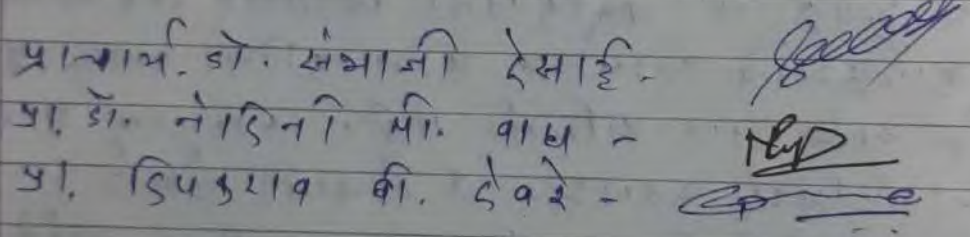 प्राचार्य. डो. संभाजी देसाई -
प्रा. डॉ. नोदिनी सी. वाघ -
प्रा. दिपकराव बी. देवरे -